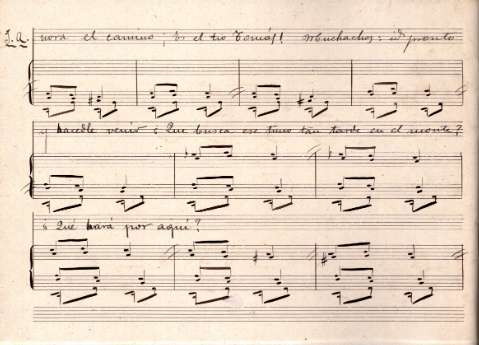 J. A. nora el camino; Es el tio Tomás! Muchachos: id pronto
y hacedle venir ¿ Que busca ese tuno tan tarde en el monte?
¿ Qué hará por aquí?